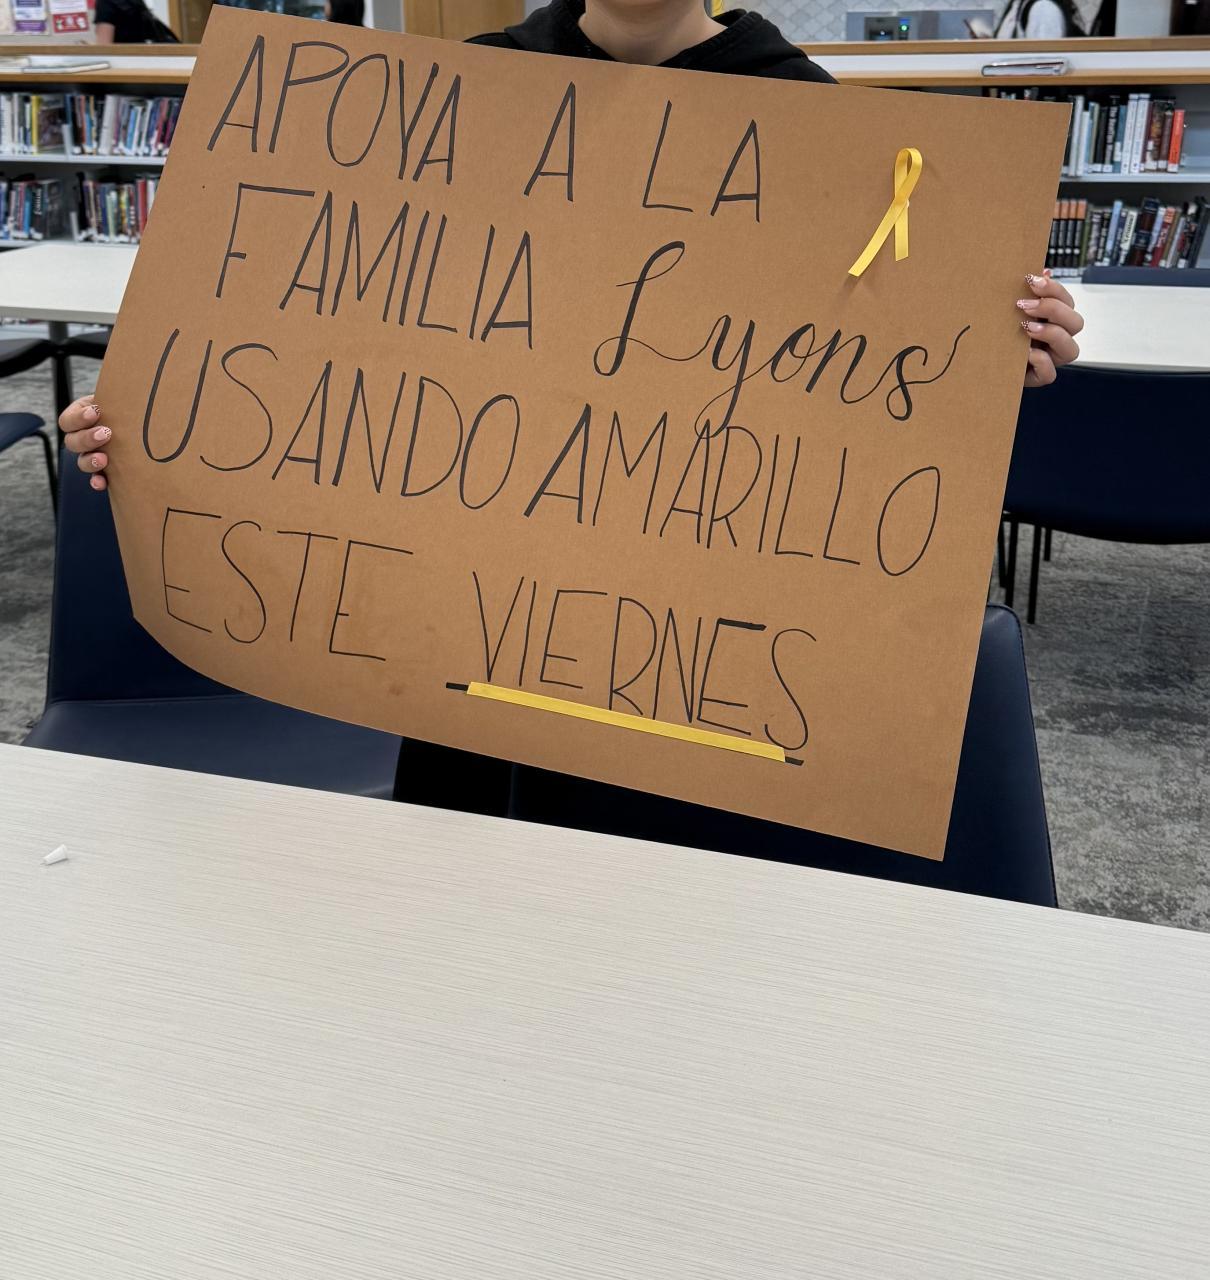 APOYA A LA
FAMILIA Lyons
USANDO AMARILLO
ESTE VIERNES